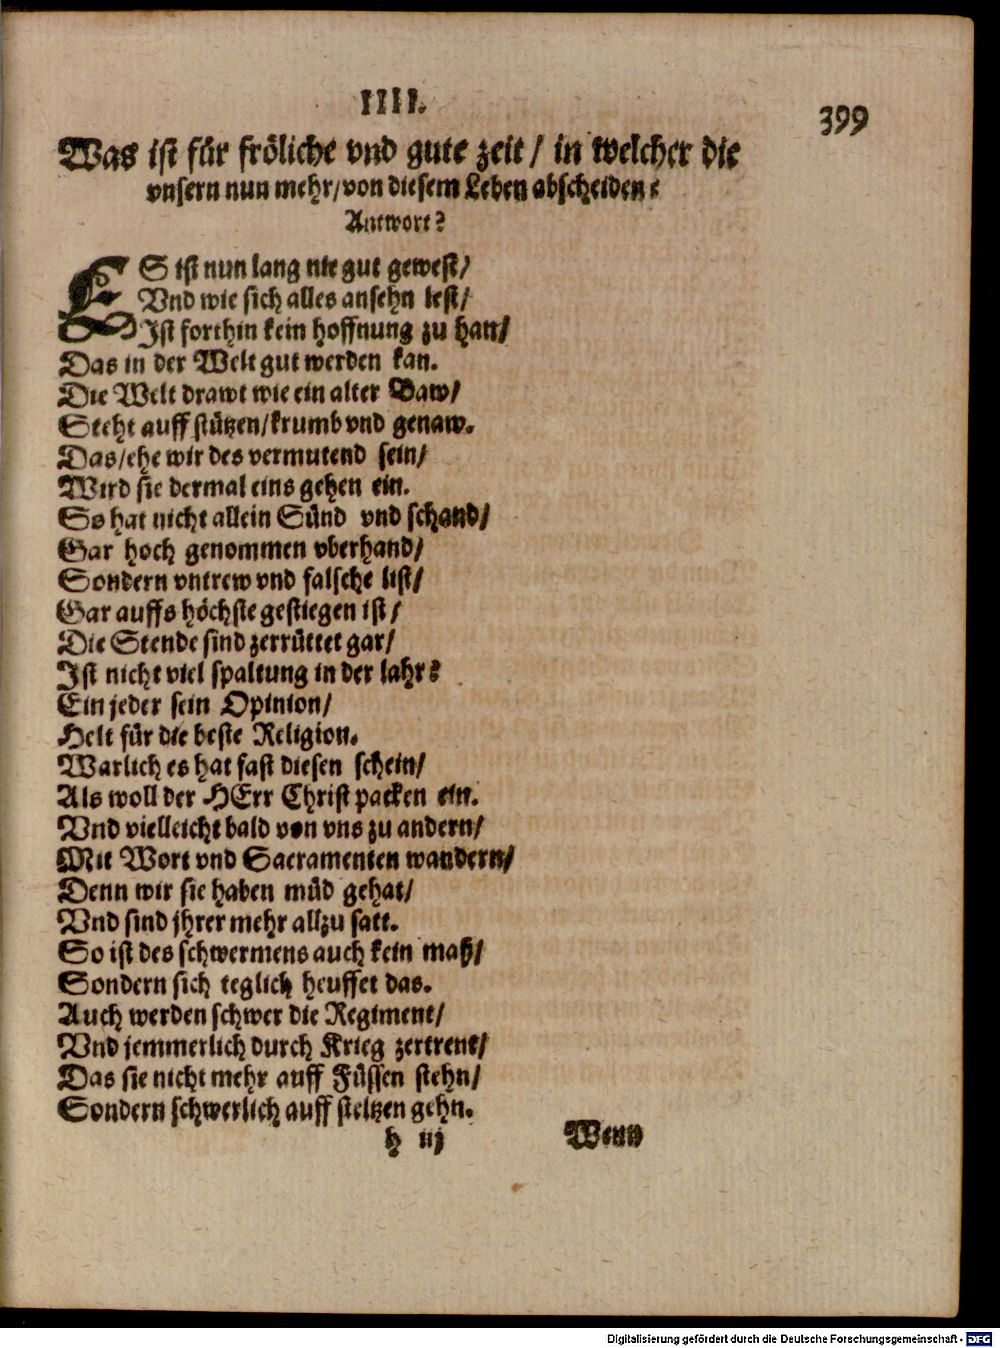 IIII.
399
Was ist für fröliche vnd gute zeit / in welcher die
vnsern nun mehr/von diesem Leben abscheiden?
Antwort?
ES ist nun lang nie gut gewest/
Vnd wie sich alles ansehn lest/
Ist forthin kein hoffnung zu han/
Das in der Welt gut werden kan.
Die Welt drawt wie ein alter Baw/
Steht auff stützen/krumb vnd genaw.
Das/ehe wir des vermutend sein/
Wird sie dermal eins gehen ein.
So hat nicht allein Sünd vnd schand/
Gar hoch genommen vberhand/
Sondern vntrew vnd falsche list/
Gar auffs höchste gestiegen ist/
Die Stende sind zerrüttet gar/
Ist nicht viel spaltung in der lahr?
Ein jeder sein Opinion/
Helt für die beste Religion.
Warlich es hat fast diesen schein/
Als woll der HErr Christ packen ein.
Vnd vielleicht bald von vns zu andern/
Mit Wort vnd Sacramenten wandern/
Denn wir sie haben müd gehat/
Vnd sind jhrer mehr allzu satt.
So ist des schwermens auch kein maß/
Sondern sich teglich heuffet das.
Auch werden schwer die Regiment/
Vnd jemmerlich durch Krieg zertrent/
Das sie nicht mehr auff Füssen stehn/
Sondern schwerlich auff steltzen gehn.
h iij
Wenn
Digitalisierung gefördert durch die Deutsche Forschungsgemeinschaft - DFG